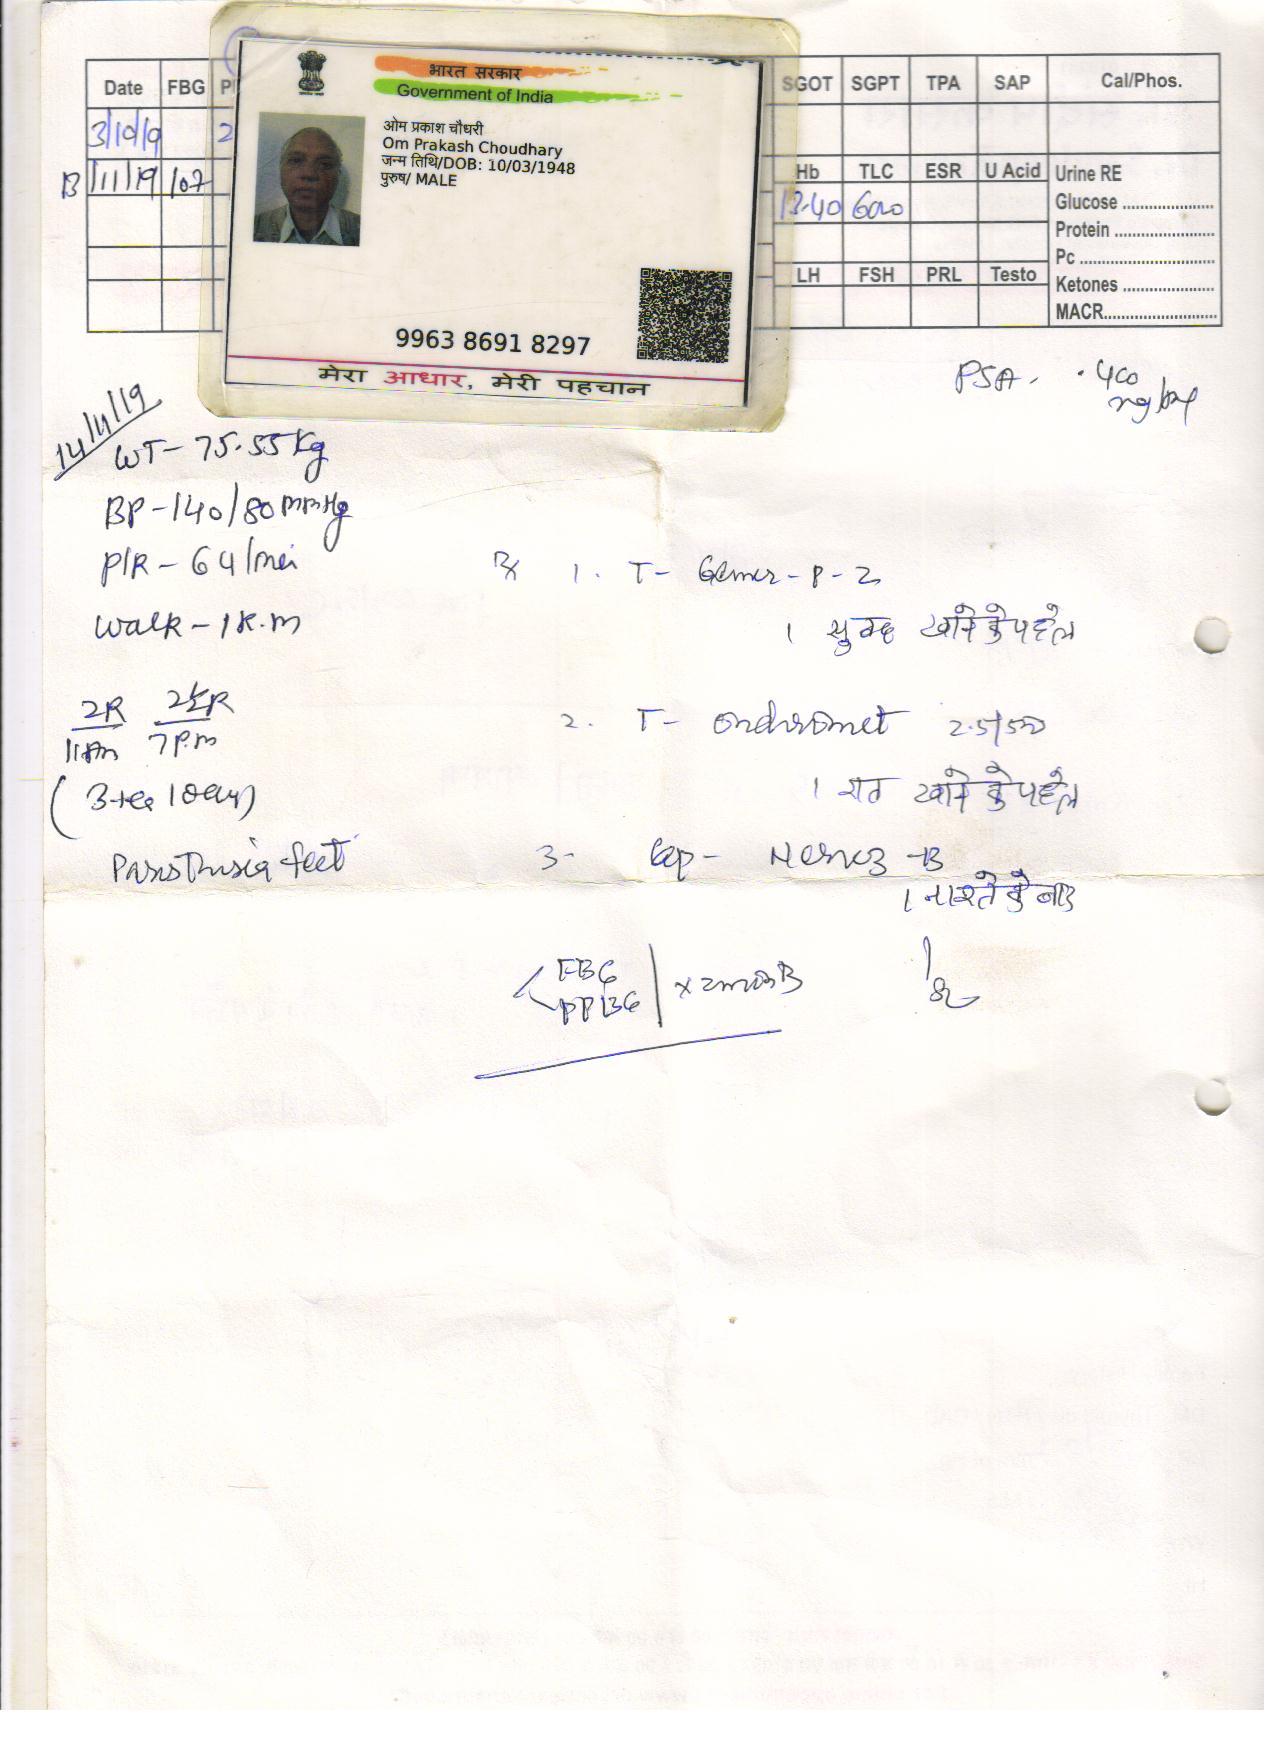 भारत सरकार
Government of India
ओम प्रकाश चौधरी
Om Prakash Choudhary
जन्म तिथि/DOB: 10/03/1948
पुरुष/ MALE
9963 8691 8297
मेरा आधार, मेरी पहचान
Date FBG SGOT SGPT TPA SAP Cal/Phos.
3/10/19 2
B 1/11/19 107 Hb TLC ESR U Acid Urine RE
13.40 6000 Glucose ......................
Protein ........................
Pc ................................
LH FSH PRL Testo Ketones ......................
MACR...........................
PSA - .400
14/11/19
WT- 75.55Kg
BP-140/80mmHg
P/R - 64/min
Walk - 1K.m
2R
11Am 7P.m
feet
Rx 1. T- Gemer-P-2
1 सुबह खाने के पहले
2. T- 2.5/500
1 रात खाने के पहले
3- Cap- -B
1 नाश्ते के बाद
FBG
PPBG